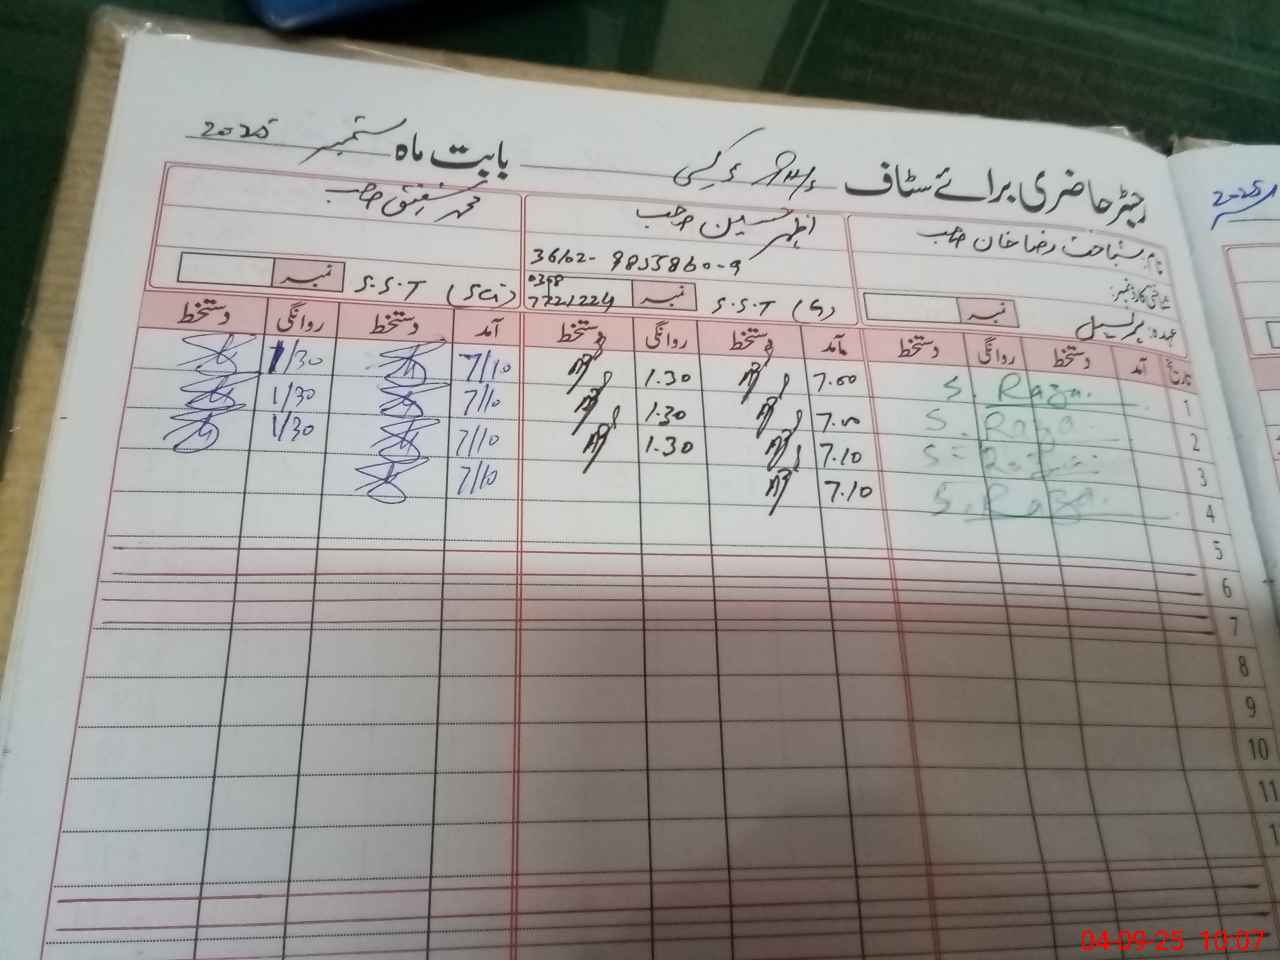 رجسٹر حاضری برائے سٹاف بابت ماہ ستمبر 2025
نام شباحت رضا خان صاحب
اظہر حسین صاحب
محمد شفیق صاحب
شناختی کارڈ نمبر:
36102-9855860-9
عہدہ: پرنسپل نمبر
S.S.T (G) نمبر 0348
7721224
S.S.T (Sci) نمبر
تاریخ آمد دستخط روانگی دستخط آمد دستخط روانگی دستخط آمد دستخط روانگی دستخط
1 S. Raza 7.00 1.30 7/10 1/30
2 S. Raza 7.00 1.30 7/10 1/30
3 S. Raza 7.10 1.30 7/10 1/30
4 S. Raza 7.10 7/10
5
6
7
8
9
10
11
2025
04-09-25 10:07